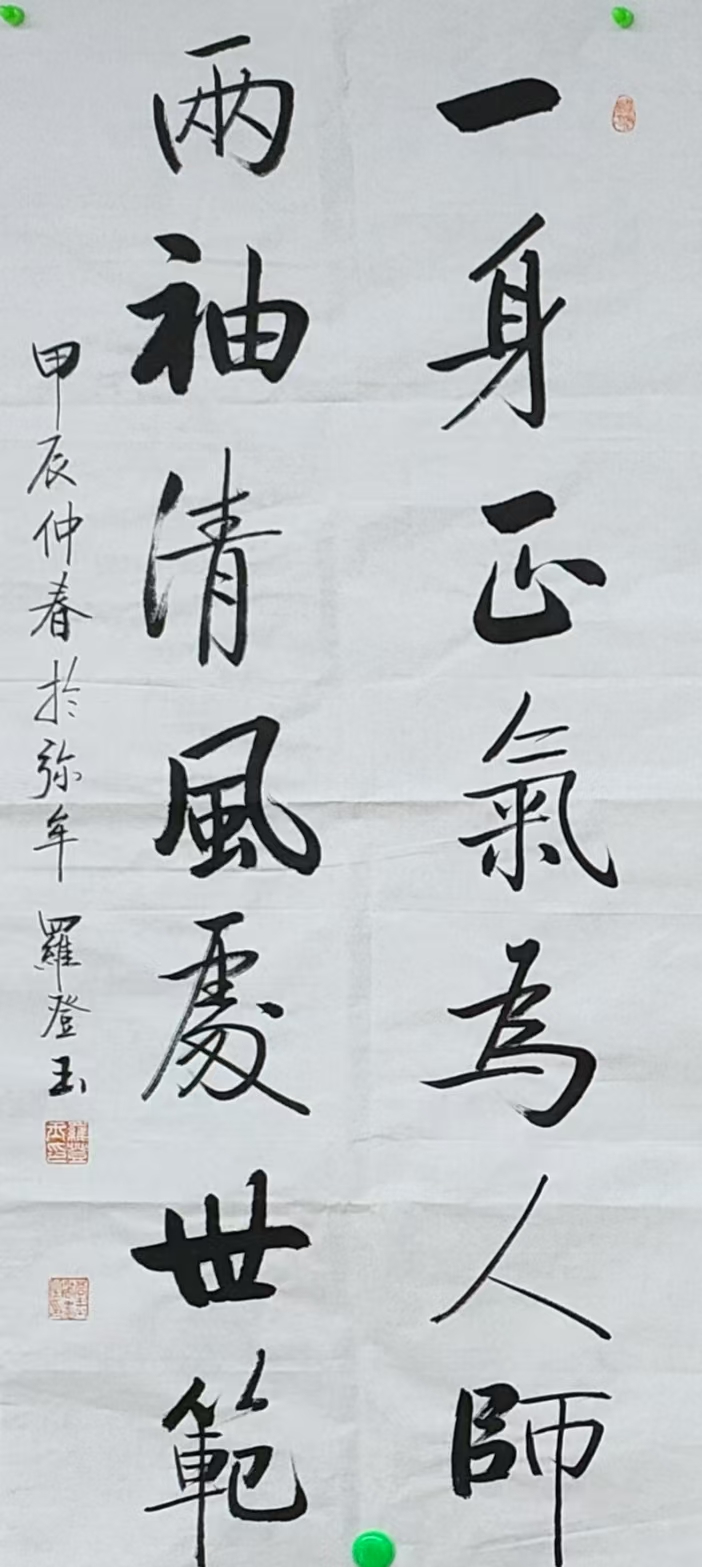 一身正氣為人師
兩袖清風處世範
甲辰仲春於弥牟羅登玉